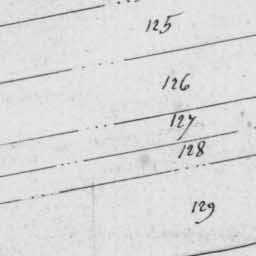 125
126
127
128
129